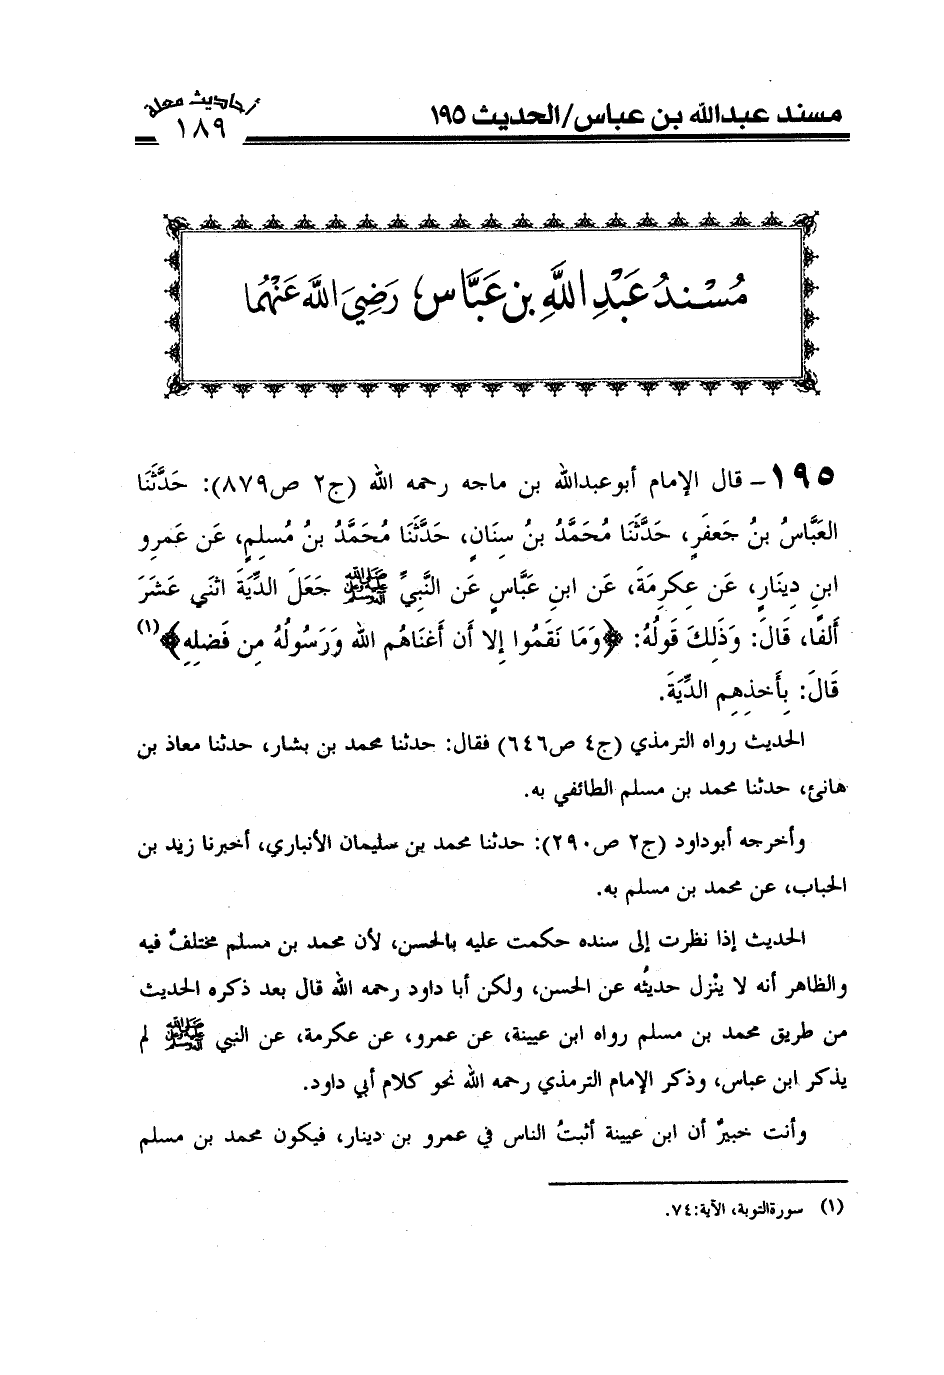 مسند عبدالله بن عباس/الحديث ١٩٥
أحاديث معلة
١٨٩
مُسْنَدُ عَبْدِ اللَّهِ بنِ عَبَّاسٍ، رَضِيَ اللَّه عَنْهُمَا
١٩٥ـ قال الإمام أبوعبدالله بن ماجه رحمه الله (ج٢ ص٨٧٩): حَدَّثَنَا
العَبَّاسُ بنُ جَعفَرٍ، حَدَّثَنَا مُحَمَّدُ بنُ سِنَانٍ، حَدَّثَنَا مُحَمَّدُ بنُ مُسلِمٍ، عَن عَمرِو
ابنِ دِينَارٍ، عَن عِكرِمَةَ، عَن ابنِ عَبَّاسٍ عَن النَّبِيِّ ﷺ جَعَلَ الدِّيَةَ اثنَي عَشَرَ
أَلفًا، قَالَ: وَذَلِكَ قَولُهُ: ﴿وَمَا نَقَمُوا إِلا أَن أَغنَاهُم الله وَرَسُولُهُ مِن فَضلِهِ﴾(١)
قَالَ: بِأَخذِهِم الدِّيَةَ.
الحديث رواه الترمذي (ج٤ ص٦٤٦) فقال: حدثنا محمد بن بشار، حدثنا معاذ بن
هانئ، حدثنا محمد بن مسلم الطائفي به.
وأخرجه أبوداود (ج٢ ص٢٩٠): حدثنا محمد بن سليمان الأنباري، أخبرنا زيد بن
الحباب، عن محمد بن مسلم به.
الحديث إذا نظرت إلى سنده حكمت عليه بالحسن، لأن محمد بن مسلم مختلفٌ فيه
والظاهر أنه لا ينْزل حديثُه عن الحسن، ولكن أبا داود رحمه الله قال بعد ذكره الحديث
من طريق محمد بن مسلم رواه ابن عيينة، عن عمرو، عن عكرمة، عن النبي ﷺ لم
يذكر ابن عباس، وذكر الإمام الترمذي رحمه الله نحو كلام أبي داود.
وأنت خبيرٌ أن ابن عيينة أثبتُ الناس في عمرو بن دينار، فيكون محمد بن مسلم
(١) سورةالتوبة، الآية:٧٤.